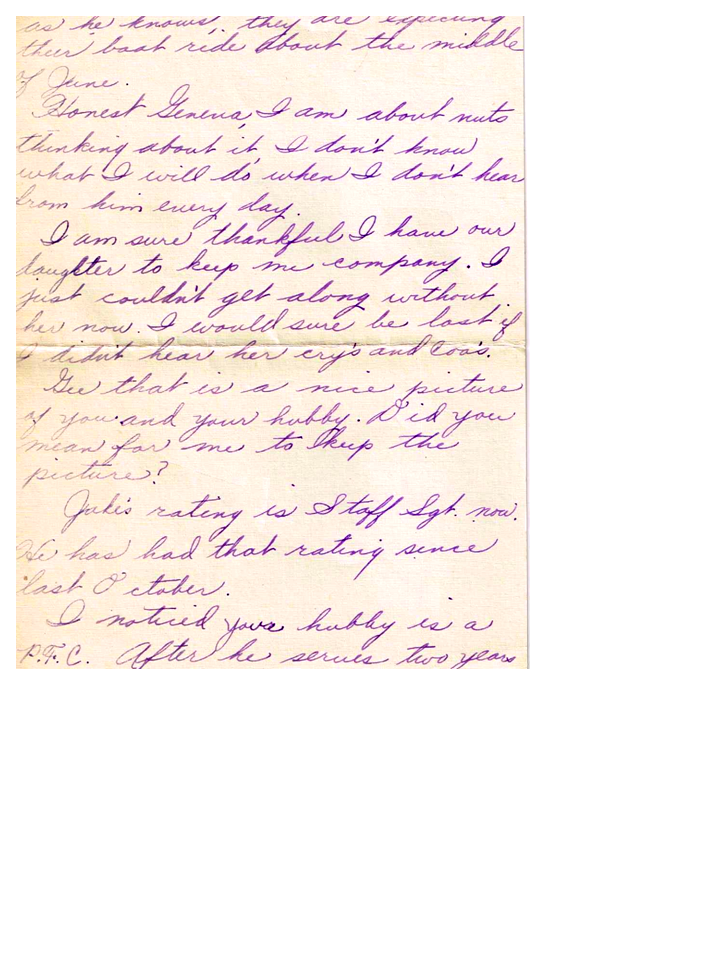 as he knows, they are expecting
their boat ride about the middle
of June.
Honest Geneva, I am about nuts
thinking about it. I don't know
what I will do when I don't hear
from him every day.
I am sure thankful I have our
daughter to keep me company. I
just couldn't get along without
her now. I would sure be lost if
I didn't hear her cry's and Coo's.
Gee that is a nice picture
of you and your hubby. Did you
mean for me to keep the
picture?
Jake's rating is Staff Sgt. now.
He has had that rating since
last October.
I noticed your hubby is a
P.F.C. After he serves two years